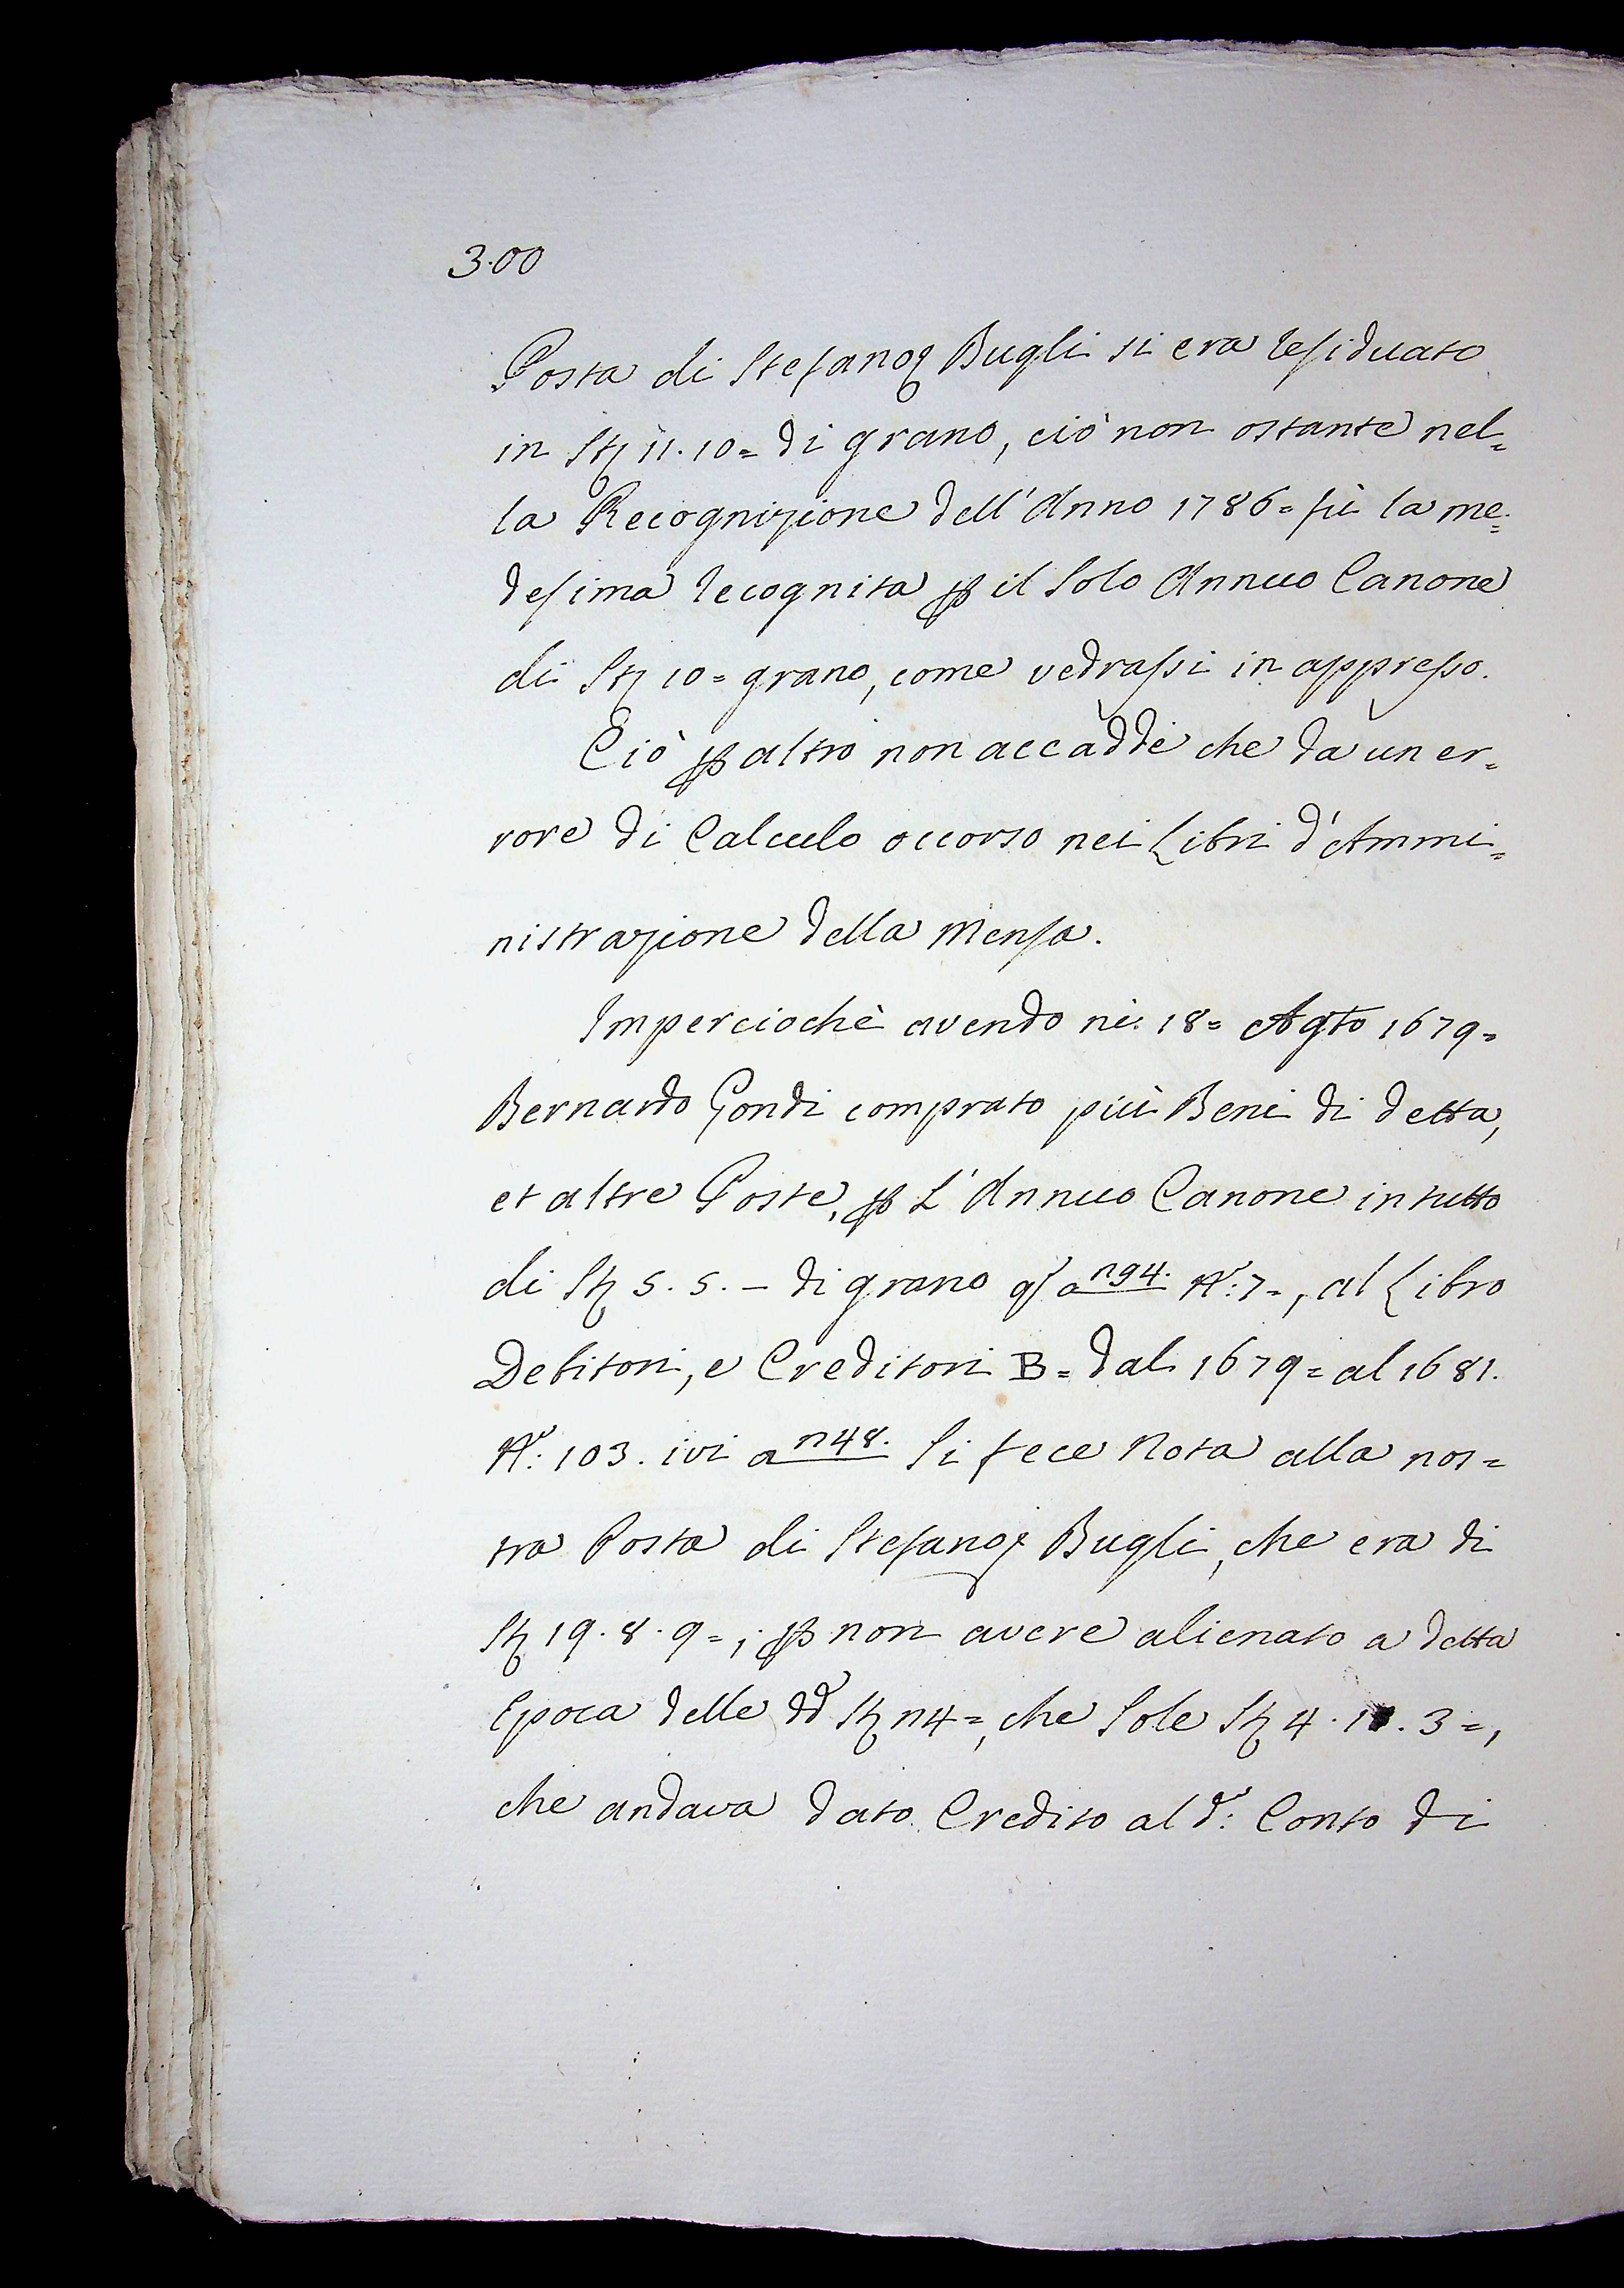 3.00
Posta di Stefanoj Bugli si era residuato
in Stj 11.10= di grano, ciò non ostante nel=
la Recognizione dell'Anno 1786= fù la me=
desima recognita p il solo Annuo Canone
di Stj 10= grano, come vedrassi in appresso.
Ciò p altro non accàdde che dà un er=
rore di Calculo occorso nei Libri d'Ammi=
nistrazione della Mensa.
Imperciochè avendo nè 18= Agto 1679=
Bernardo Gondi comprato più Beni di detta,
et altre Poste, p L'Annuo Canone in tutto
di Stj 5. 5. - di grano a 194. No: 7=, al Libro
Debitori, e Creditori B= dal 1679= al 1681.
No: 103. ivi a 148. Si fece Nota alla nos=
tra Posta di Stefanoj Bugli, che era di
Stj 19. 8. 9=; p non avere alienato a detta
Epoca delle dd Stj 14=, che Sole Stj 4. . 3=,
che andava dato Credito al do: Conto di